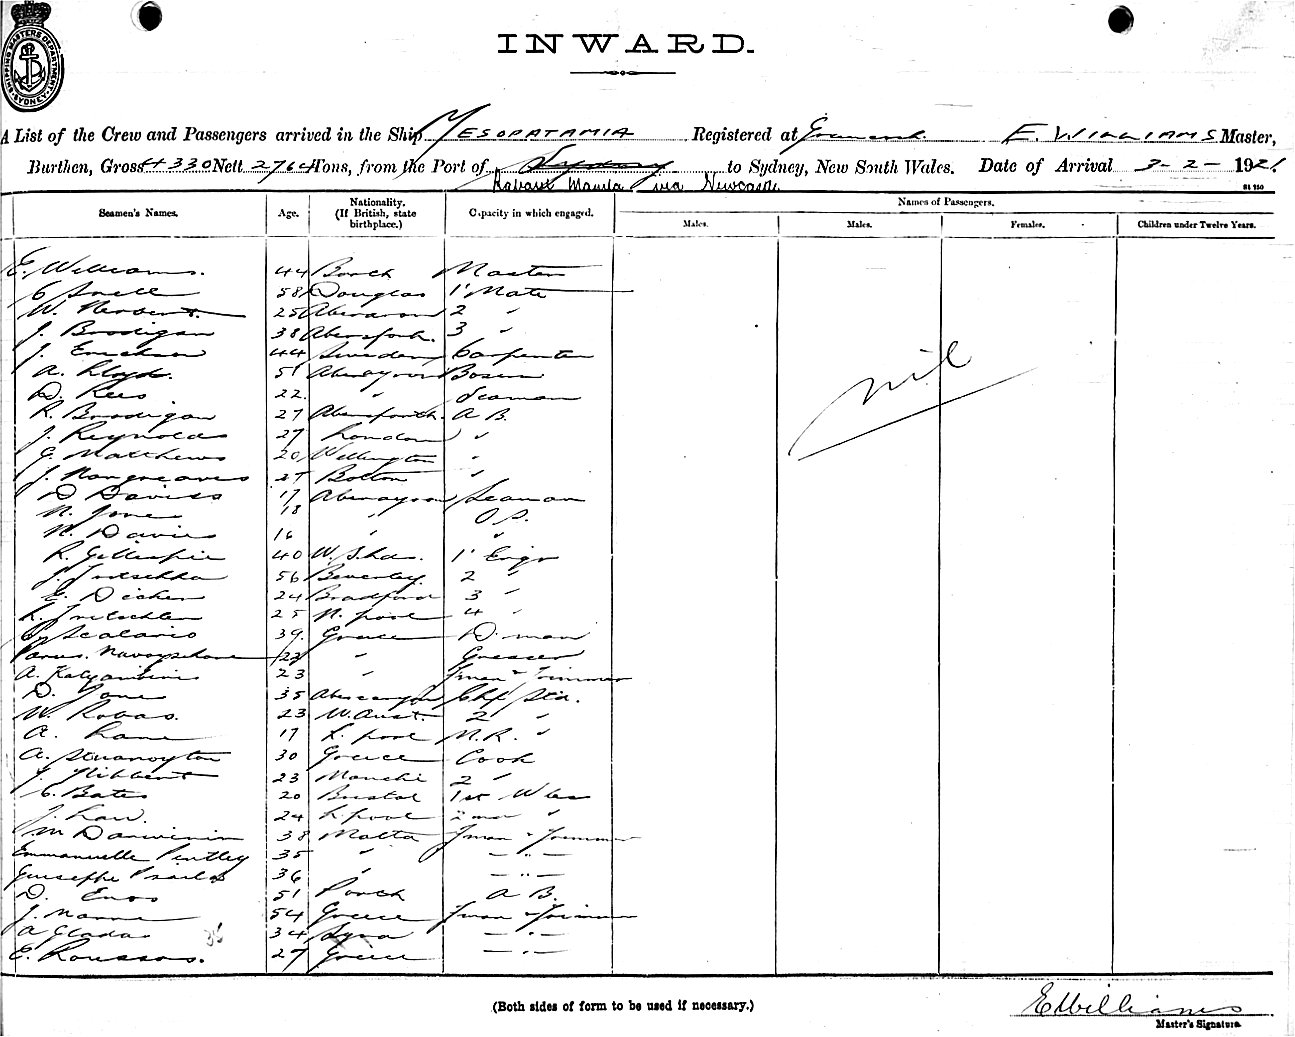 SHIPPING MASTERS DEPARTMENT SYDNEY
INWARD.
A List of the Crew and Passengers arrived in the Ship MESOPATAMIA Registered at E. WILLIAMS Master,
Burthen, Gross 4330 Nett 2764 Tons, from the Port of Sydney to Sydney, New South Wales. Date of Arrival 3-2-1921.
Rabaul Manila via Newcastle
Seamen's Names. Age. Nationality. (If British, state birthplace.) Capacity in which engaged. Names of Passengers.
Males. Males. Females. Children under Twelve Years.
E. Williams. 44 Borth Master
C Snell 58 Douglas 1' Mate
W. Herbert. 25 Aberavon 2 "
J. Brodigan 38 3 "
J. Erickson 44 Sweden Carpenter
A. Lloyd. 51 Aberayron Bosun
D. Rees 22. " Seaman
R. Brodigan 27 A B.
J. Reynolds 27 London "
G. Matthews 20 Wellington "
J. Hargreaves 27 Bolton "
D Davies 17 Aberayron Seaman
N. Jones 18 " O S.
N. Davies 16 " "
R. Gillespie 40 1' Engr
J. 56 Beverley. 2 "
E. Dicken 24 Bradford 3 "
R. 25 H. pool 4 "
Scalario 39. Greece D. man
23 " Greaser
A. 23 " Fman & Trimmer
D. Jones 35 Aberayron Chf Std.
W. Robas. 23 W. Aust. 2 "
A. Lane 17 L. pool M.R. "
A. 30 Greece Cook
J. Hibbert 23 Manchr 2 "
C. Bates 20 Bristol 1st Wles
J. Law. 24 L. pool 2nd "
M 38 Malta Fman & Trimmer
Emmanuelle 35 " — " —
Guiseppe 36 " — " —
D. Enos 51 Porth A B.
J. 54 Greece Fman & Trimmer
A Gladas 34 Syra — " —
E. Roussos. 27 Greece — " —
nil
(Both sides of form to be used if necessary.)
E Williams
Master's Signature.